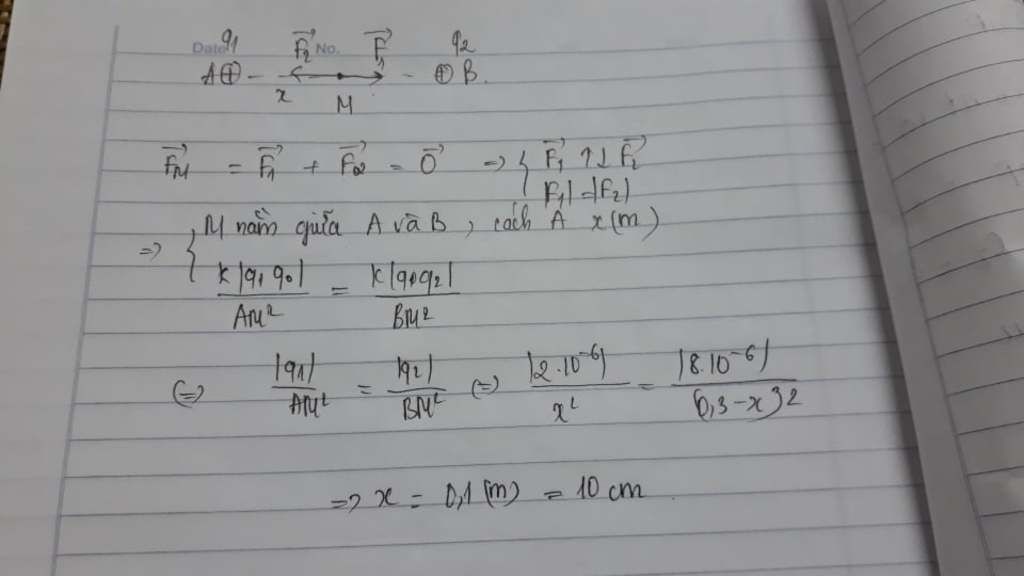 Date q1 F₂→ No. F₁→ q2
A⊕ - ←•→ - ⊕B.
x M
F_M→ = F₁→ + F₂→ = 0→ => { F₁→ ↑↓ F₂→
|F₁| = |F₂|
=> { M nằm giữa A và B, cách A x(m)
k|q₁q₀|/AM² = k|q₀q₂|/BM²
(=) |q1|/AM² = |q2|/BM² (=) |2.10⁻⁶|/x² = |8.10⁻⁶|/(0,3-x)2
=> x = 0,1 (m) = 10 cm